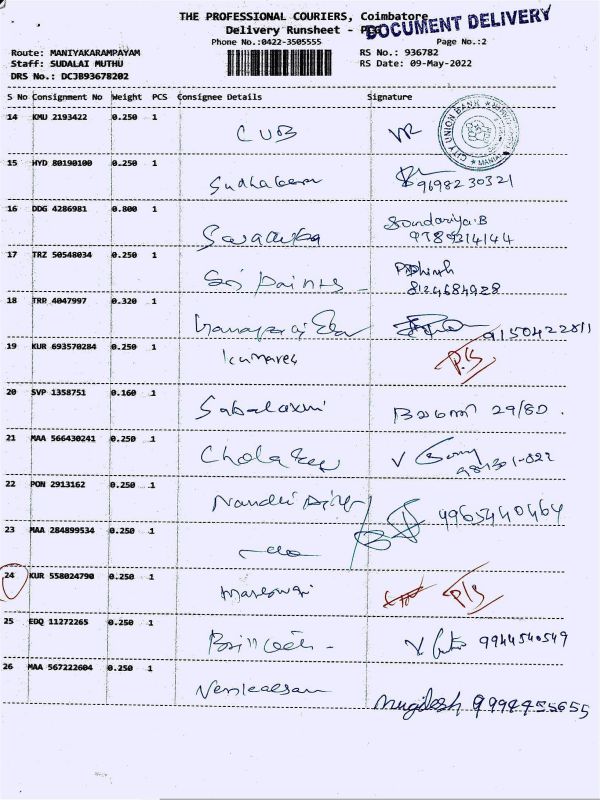 THE PROFESSIONAL COURIERS, Coimbatore
DOCUMENT DELIVERY
Delivery Runsheet -
Phone No.:0422-3505555 Page No.:2
Route: MANIYAKARAMPAYAM RS No.: 936782
Staff: SUDALAI MUTHU RS Date: 09-May-2022
DRS No.: DCJB93678202
S No Consignment No Weight PCS Consignee Details Signature
14 KMU 2193422 0.250 1 CUB
CITY UNION BANK
15 HYD 80190100 0.250 1
9698230321
16 DDG 4286981 0.800 1 Soundariya.B
9789314144
17 TRZ 50548034 0.250 1 Sri Paints -
8124684928
18 TRR 4047997 0.320 1 9150422811
19 KUR 693570284 0.250 1 Kumares P/S
20 SVP 1358751 0.160 1 Sabalaxmi 29/80.
21 MAA 566430241 0.250 1
22 PON 2913162 0.250 1 Nandhi 9965440464
23 MAA 284899534 0.250 1
24 KUR 558024790 0.250 1 P/S
25 EDQ 11272265 0.250 1 9944540549
26 MAA 567222604 0.250 1 Venkatesan Mugilesh 9994455655